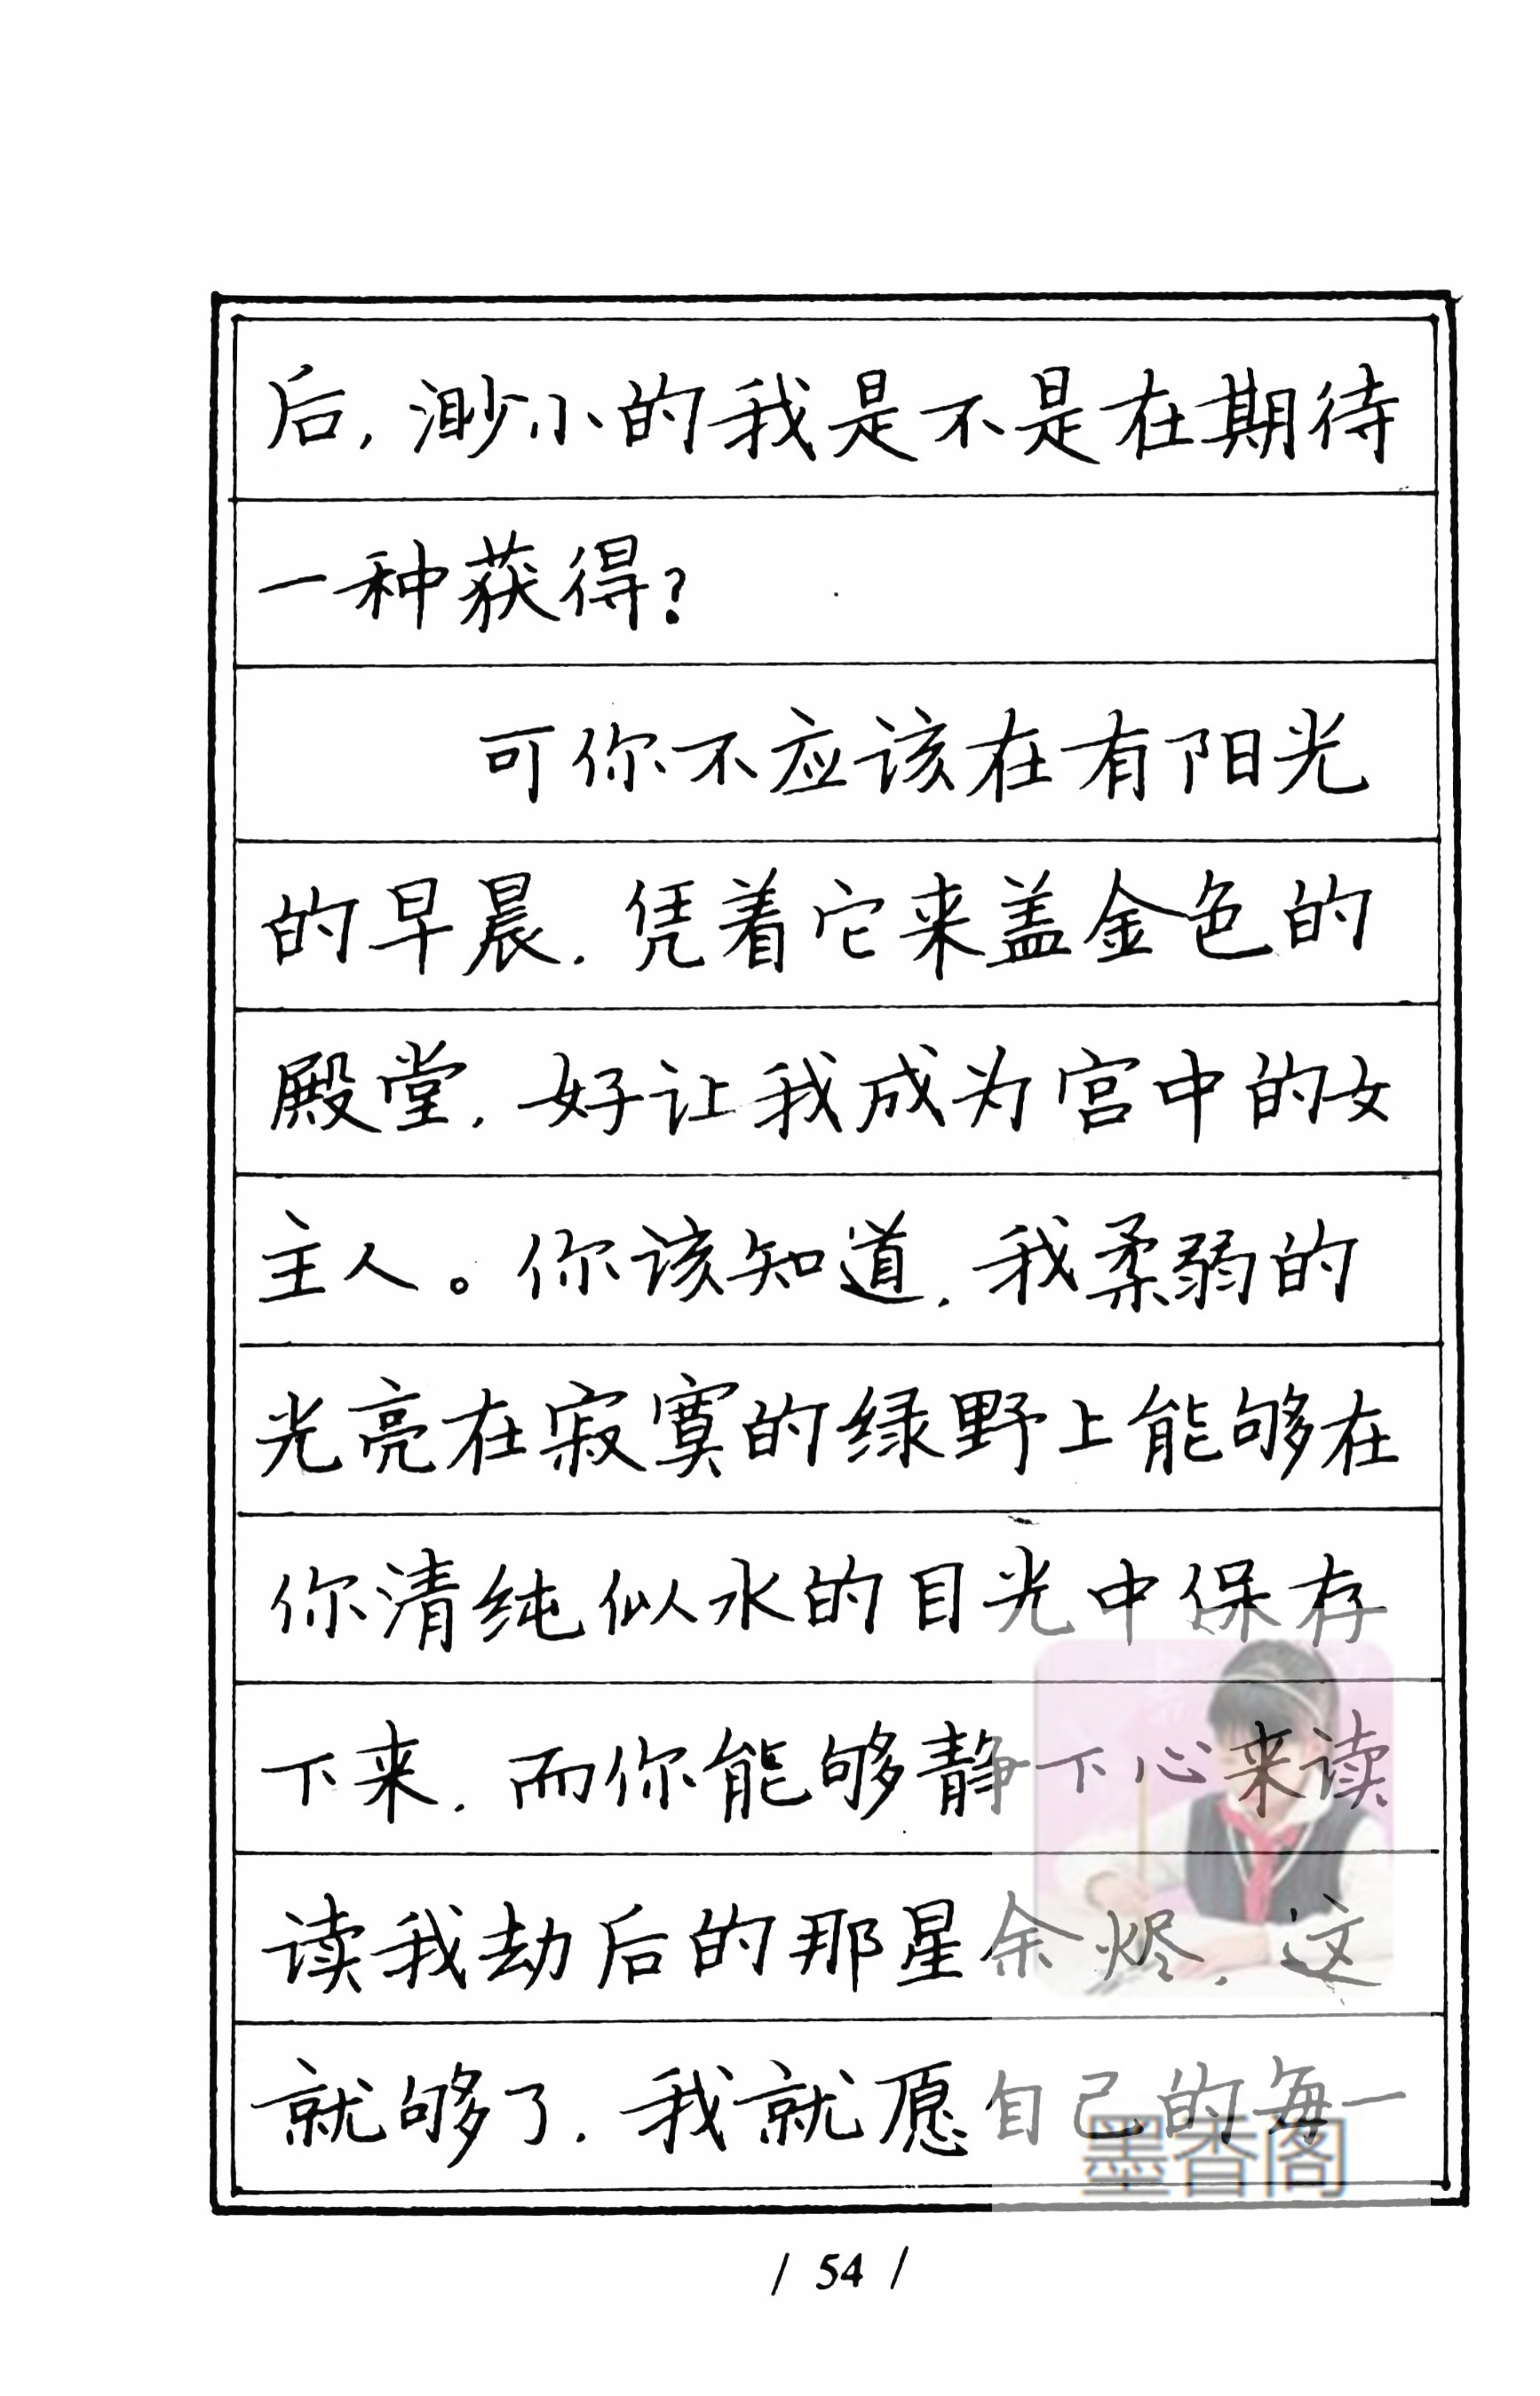 后,渺小的我是不是在期待
一种获得?
可你不应该在有阳光
的早晨.凭着它来盖金色的
殿堂.好让我成为宫中的女
主人。你该知道.我柔弱的
光亮在寂寞的绿野上能够在
你清纯似水的目光中保存
下来.而你能够静下心来读
读我劫后的那星余烬.这
就够了.我就愿自己的每一
墨香阁
/ 54 /